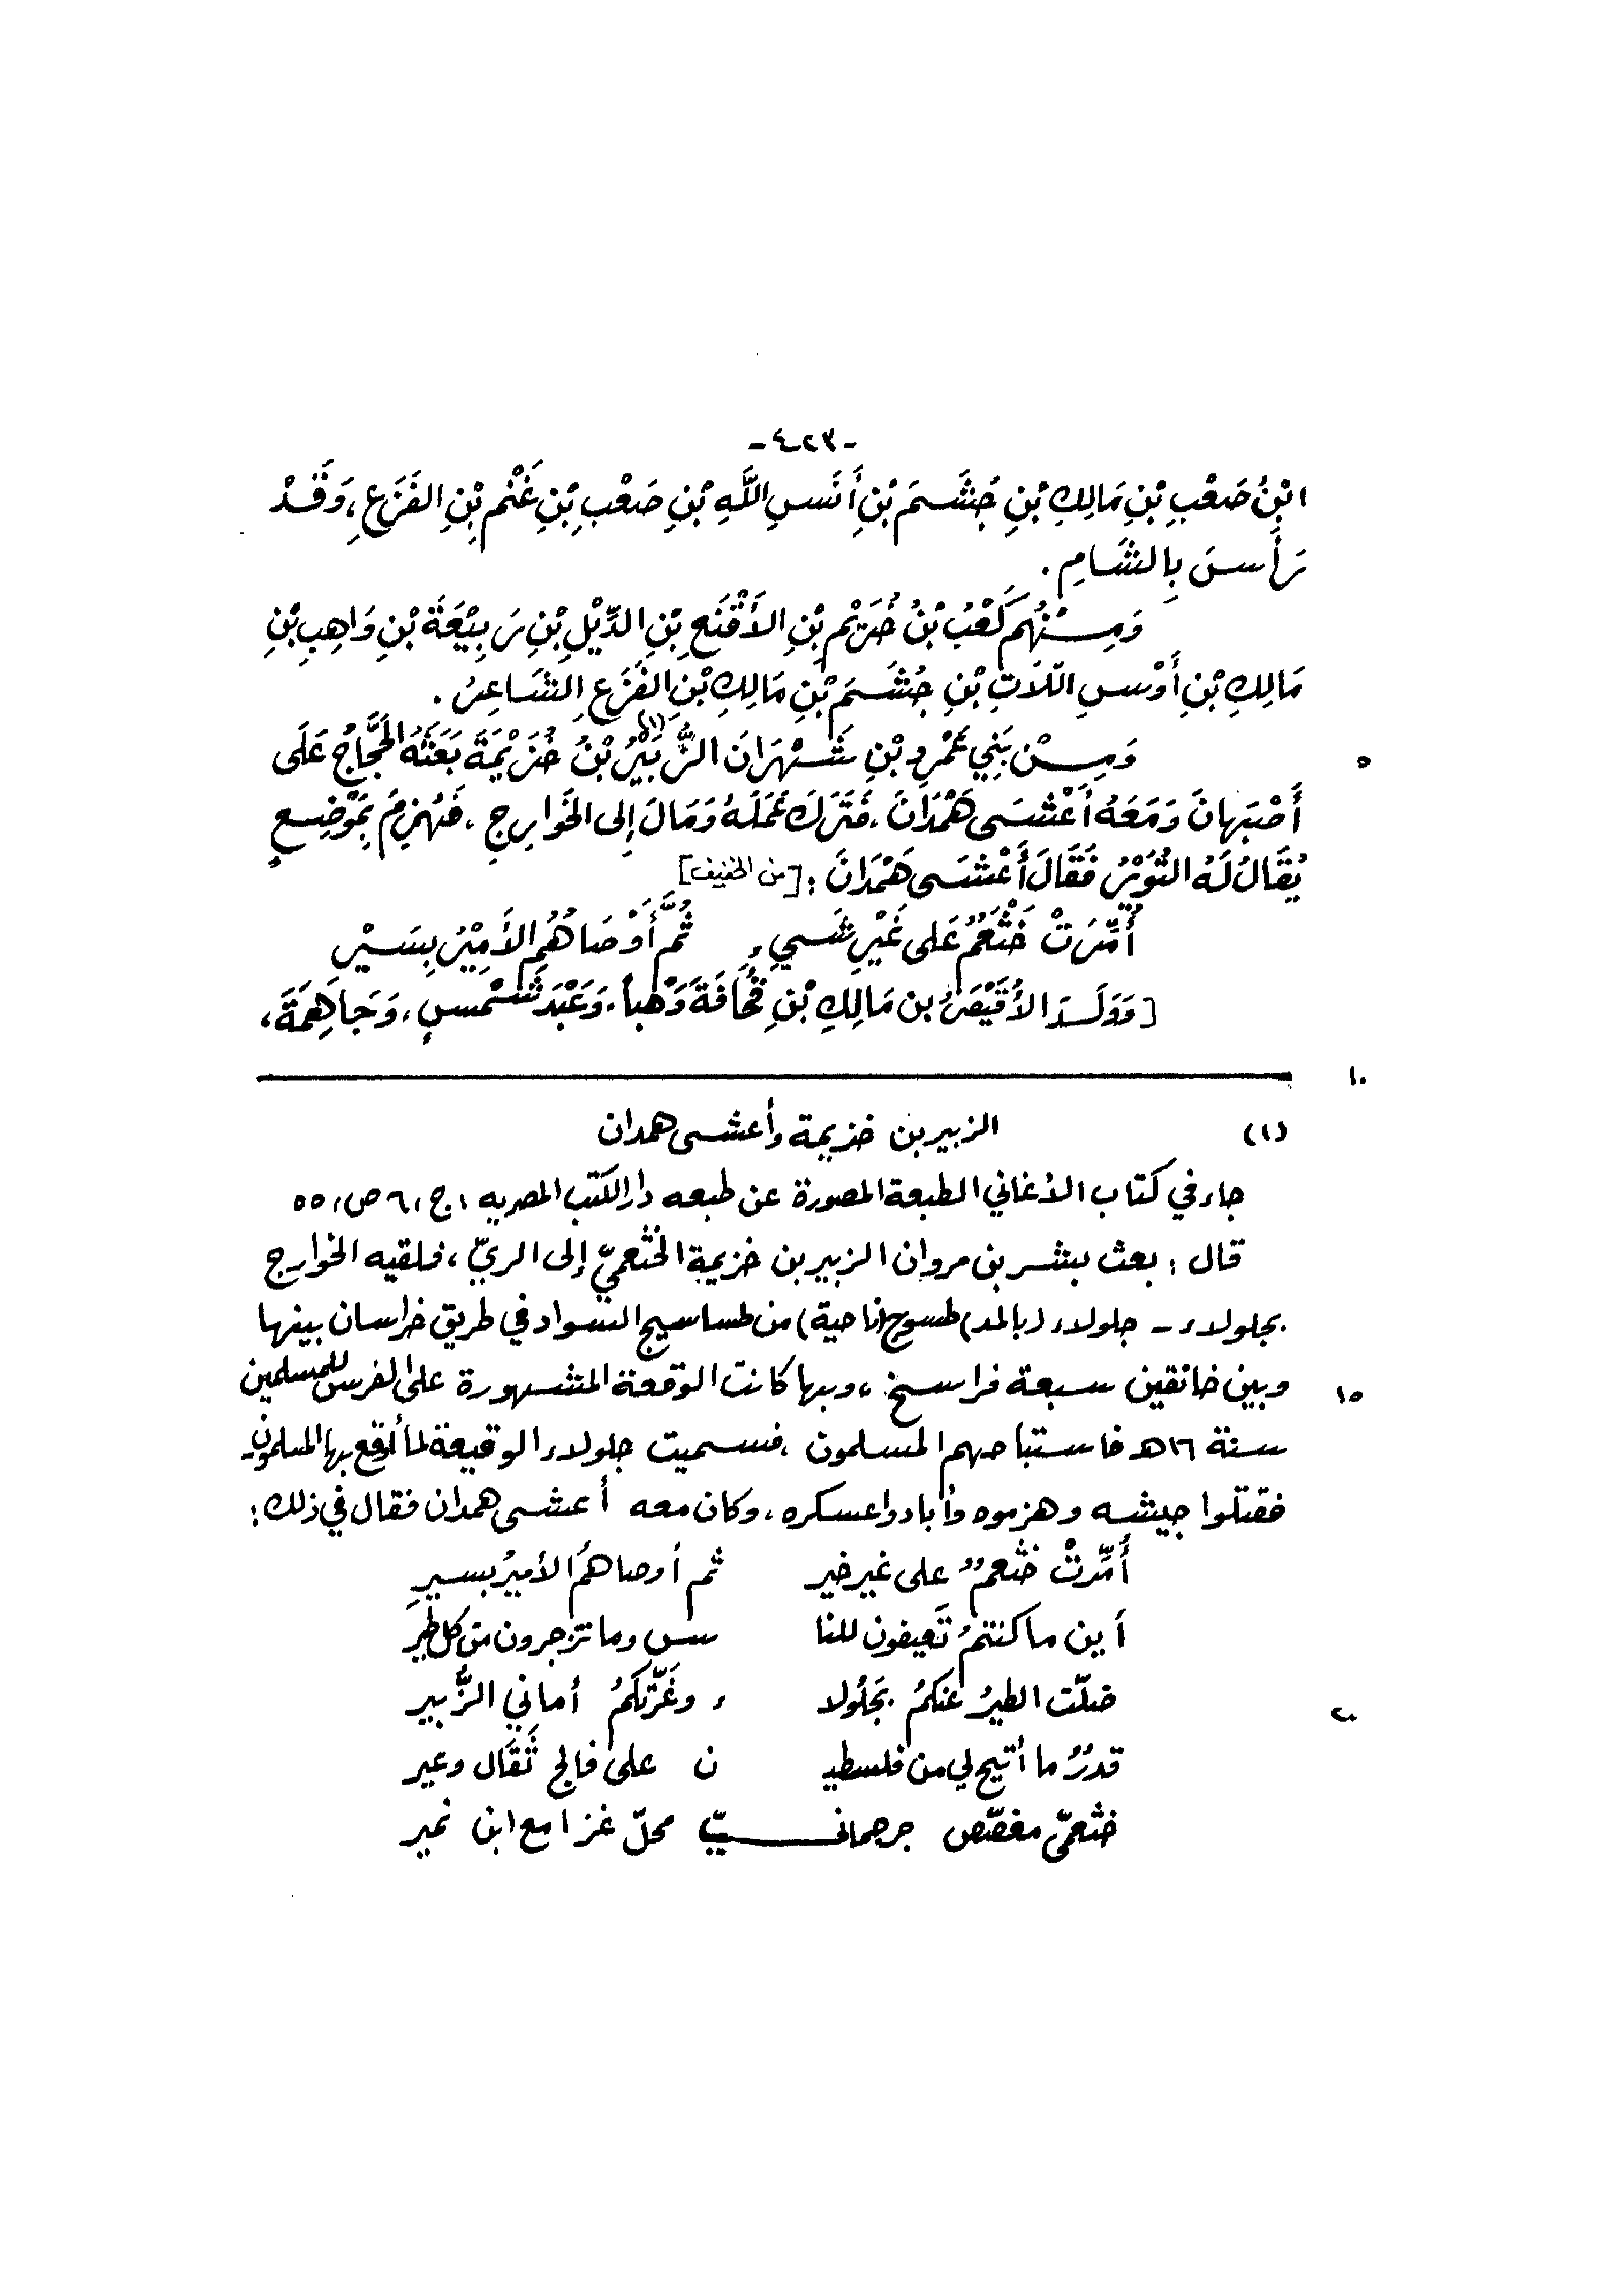 -٤٢٣-
ابْنُ صَعْبِ بْنِ مَالِكِ بْنِ جُشَمَ بْنِ أَنَسِ اللَّهِ بْنِ صَعْبِ بْنِ غَنْمِ بْنِ الفَزَعِ، وَقَدْ
رَأَسَ بِالشَّامِ.
وَمِنْهُم كَعْبُ بْنُ خُزَيْمِ بْنِ الأَقْنَعِ بْنِ الدِّيْلِ بْنِ رَبِيْعَةَ بْنِ وَاهِبِ بْنِ
مَالِكِ بْنِ أَوْسِ اللَّاتِ بْنِ جُشَمَ بْنِ مَالِكِ بْنِ الفَزَعِ الشَّاعِرُ.
وَمِنْ بَنِي عَمْرِو بْنِ شَهْرَانَ الزُّبَيْرُ (١) بْنُ خُزَيْمَةَ بَعَثَهُ الحَجَّاجُ عَلَى
٥
أَصْبَهانَ وَمَعَهُ أَعْشَى هَمْدَانَ، فَتَرَكَ عَمَلَهُ وَمَالَ إِلى الخَوارِجِ، فَهُزِمَ بِمَوْضِعٍ
يُقَالُ لَهُ التُّوَيْرُ فَقَالَ أَعْشَى هَمْدَانَ: [من الخفيف]
أُمِّرَتْ خَثْعَمٌ عَلى غَيْرِ شَيءٍ ثُمَّ أَوْصَاهُمُ الأَمِيْرُ بِسَيْرِ
[وَوَلَدَ الأُقَيْصَرُ بن مَالِكِ بْنِ قُحَافَةَ وَهْباً، وَعَبْدَ شَمْسٍ، وَجَاهِمَةَ،
١٠
(١) الزبير بن خزيمة وأعشى همدان
جاء في كتاب الأغاني الطبعة المصورة عن طبعه دار الكتب المصريه، ج، ٦، ص، ٥٥
قال: بعث بشر بن مروان الزبير بن خزيمة الخثعميّ إلى الريّ، فلقيه الخوارج
بجلولاء - جلولاء (بالمد) طسوج (ناحية) من طساسيج السواد في طريق خراسان بينها
وبين خانقين سبعة فراسخ، وبها كانت الوقعة المشهورة على الفرس للمسلمين
١٥
سنة ١٦هـ فاستباحهم المسلمون، فسميت جلولاء الوقيعة لما أوقع بها المسلمون
فقتلوا جيشه وهزموه وأبادوا عسكره، وكان معه أعشى همدان فقال في ذلك:
أُمِّرتْ خثعمٌ على غير خير ثم أوصاهمُ الأميرُ بسيرِ
أين ما كنتمُ تَعيفون للنا س وما تزجرون من كل طير
ضلّت الطيرُ عنكمُ بجَلُولا ء وغَرّتكمُ أماني الزُّبير
٢٠
قدرٌ ما أتيح لي من فلسطيـ ن على فالج ثَقَال وعير
خثعميّ مغصّص جرجمانـ ـيّ محلّ غزا مع ابن نمير